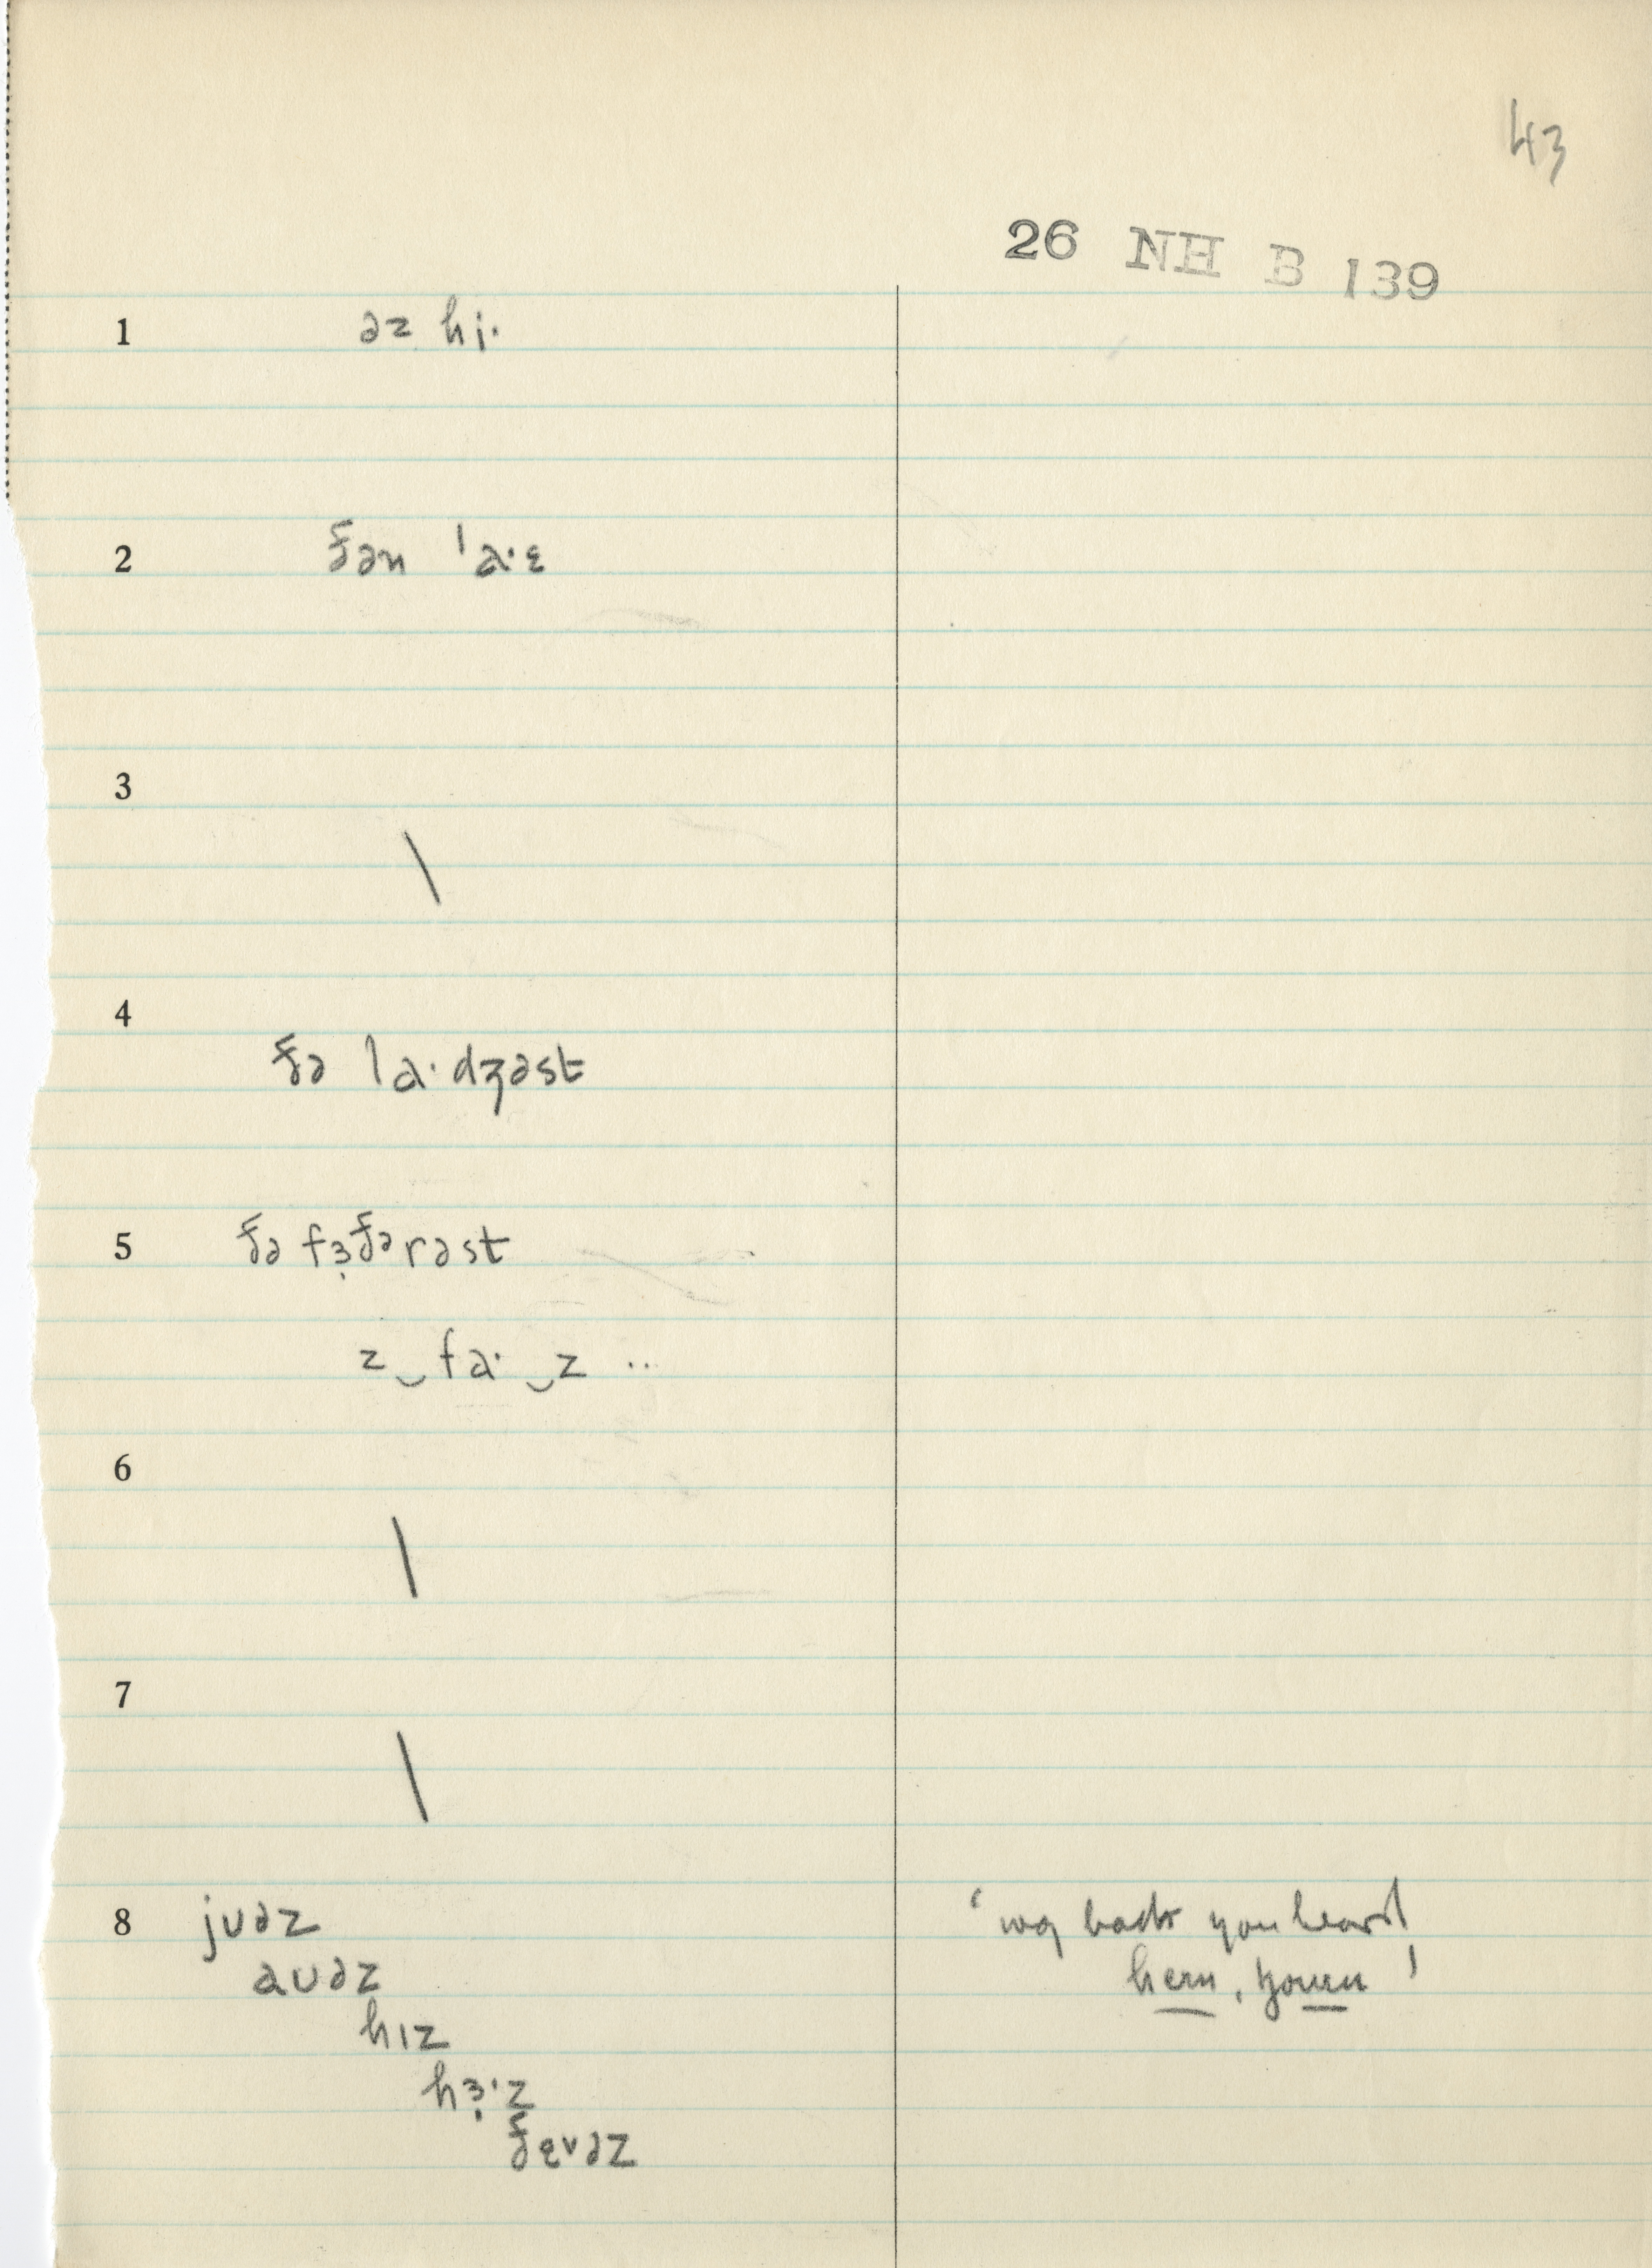 43
26 NH B 139
1 əz hi·
2 ðən ˈa·ɛ
3 \
4 ðə la·dʒəst
5 ðə fɜ̣ðərəst
z‿fa·‿z ..
6 \
7 \
8 jʊəz
aʊəz
hɪz
hɜ̣·z
ðɛvəz
'way back you heard
hern, yourn'